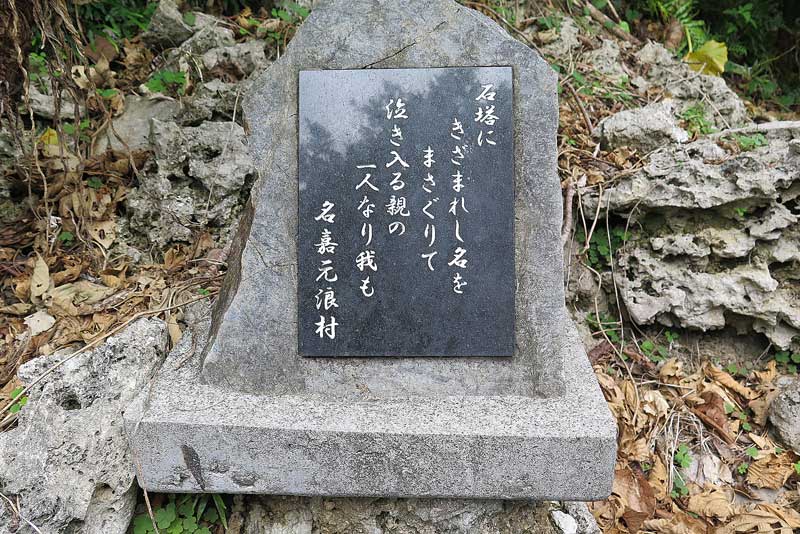 石塔に
きざまれし名を
まさぐりて
泣き入る親の
一人なり我も
名嘉元浪村